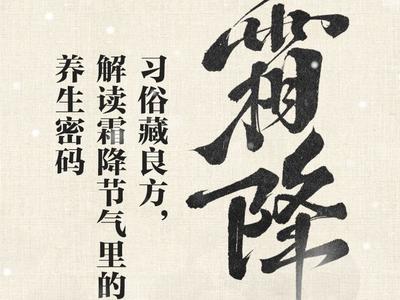 霜降
习俗藏良方，
解读霜降节气里的
养生密码